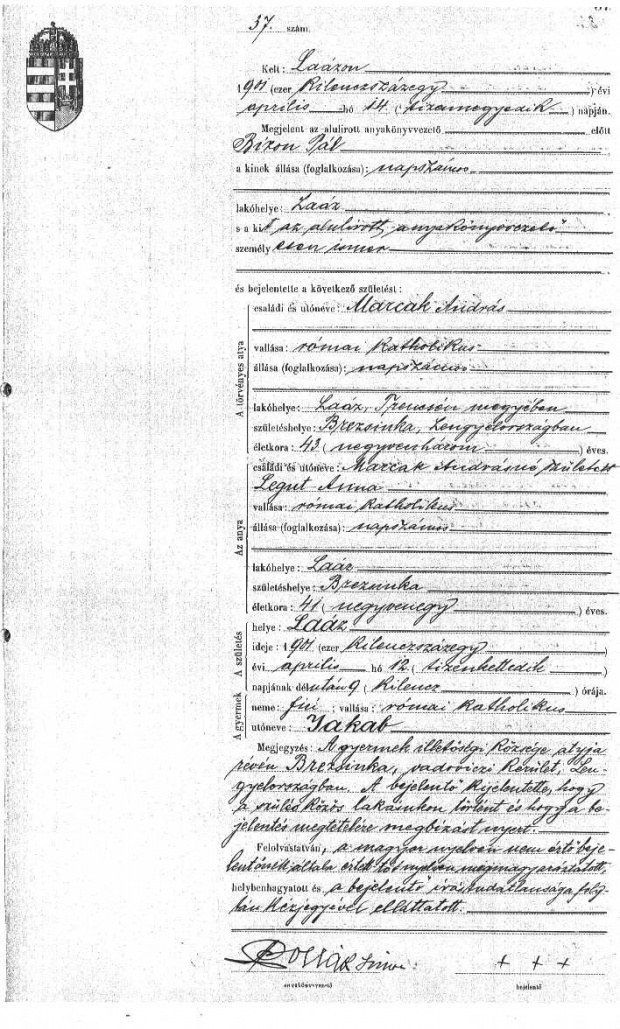 37. szám.
Kelt: Laázon
1901 (ezer Kilenczszázegy) évi
április hó 14. (tizennegyedik) napján.
Megjelent az alulirott anyakönyvvezető előtt
Bizon Pál
a kinek állása (foglalkozása): napszámos
lakóhelye: Laáz
s a kit az alulirott anyakönyvvezető
személyesen ismer
és bejelentette a következő születést:
A törvényes atya
családi és utóneve: Marcak András
vallása: római katholikus
állása (foglalkozása): napszámos
lakóhelye: Laáz, Trencsén megyében
születéshelye: Brezsinka, Lengyelországban
életkora: 43 (negyvenhárom) éves.
Az anya
családi és utóneve: Marcak Andrásné, született
Legut Anna
vallása: római katholikus
állása (foglalkozása): napszámos
lakóhelye: Laáz
születéshelye: Brezsinka
életkora: 41 (negyvenegy) éves.
A születés
helye: Laáz
ideje: 1901 (ezer Kilenczszázegy)
évi április hó 12 (tizenkettedik)
napjának délután 9 (Kilencz) órája.
A gyermek
neme: fiú; vallása: római katholikus
utóneve: Jakab
Megjegyzés: A gyermek illetőségi községe atyja
révén Brezsinka, vadoviczi kerület, Len-
gyelországban. A bejelentő kijelentette, hogy
a szülés közös lakásukon történt és hogy a be-
jelentés megtételére megbízást nyert.
Felolvastatván, a magyar nyelven nem értő beje-
lentőnek általa értett tót nyelven megmagyaráztatott,
helybenhagyatott és a bejelentő irástudatlansága foly-
tán kézjegyével elláttatott.
Pollák Simon + + +
anyakönyvvezető bejelentő